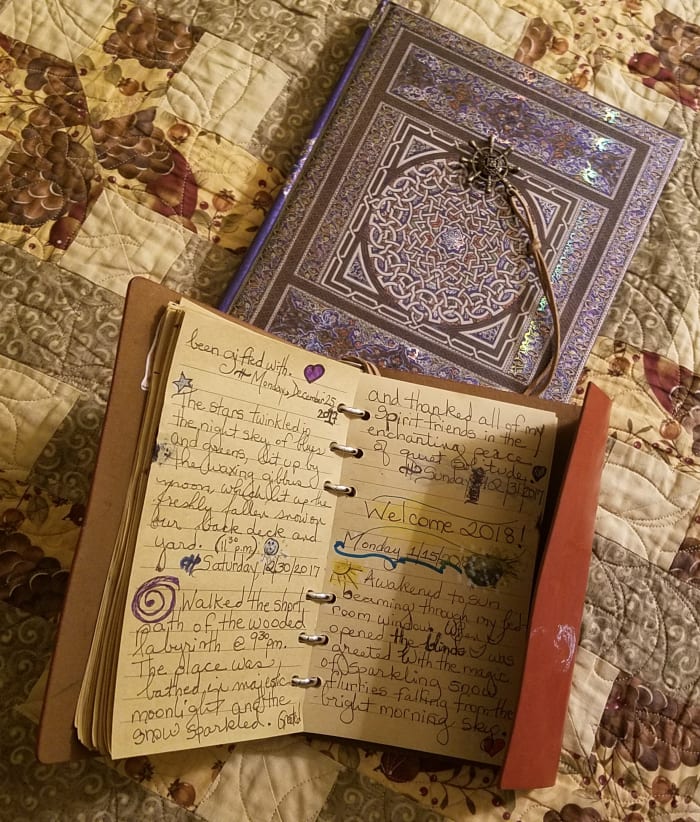 been gifted with.
Monday, December 25,
2017
The stars twinkled in
the night sky of blues
and greens, lit up by
the waxing gibbous
moon, which lit up the
freshly fallen snow on
our back deck and
yard. (11:30 pm)
Saturday, 12/30/2017
Walked the short
path of the wooded
labyrinth @ 9:30 pm.
The place was
bathed in majestic
moonlight and the
snow sparkled.
and thanked all of my
Spirit friends in the
enchanting peace
of quiet solitude.
Sunday 12/31/2017
Welcome 2018!
Monday 1/15/
Awakened to sun
beaming through my bed-
room window. When I
opened the blinds I was
greeted with the magic
of sparkling snow
flurries falling from the
bright morning sky.